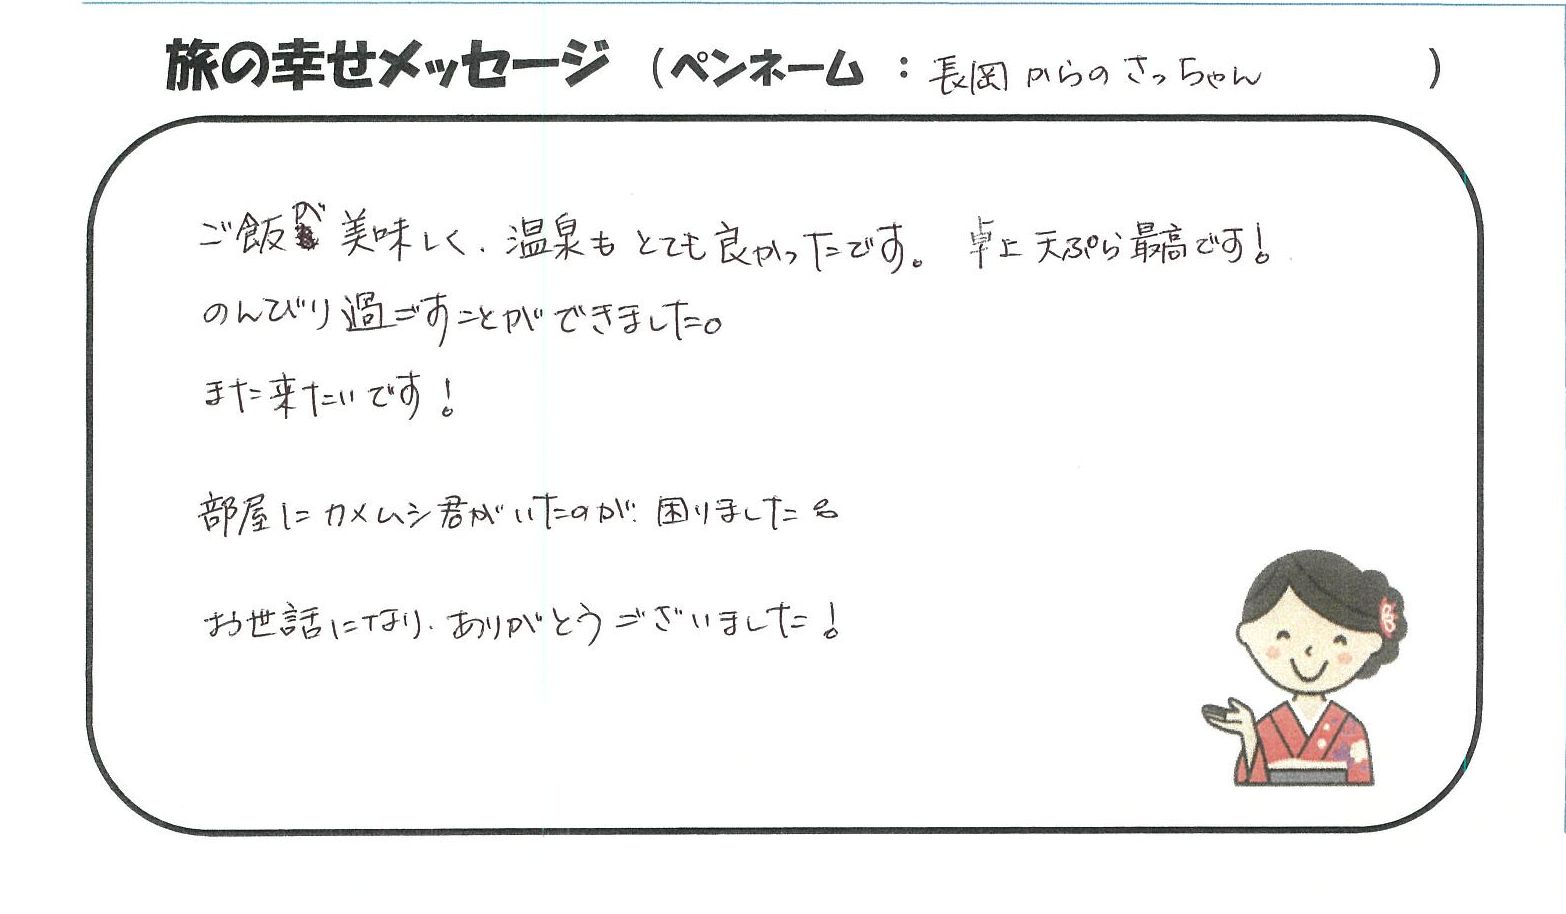 旅の幸せメッセージ （ペンネーム ：長岡からのさっちゃん ）
ご飯が美味しく、温泉もとても良かったです。 卓上天ぷら最高です！
のんびり過ごすことができました。
また来たいです！
部屋にカメムシ君がいたのが、困りました
お世話になり、ありがとうございました！